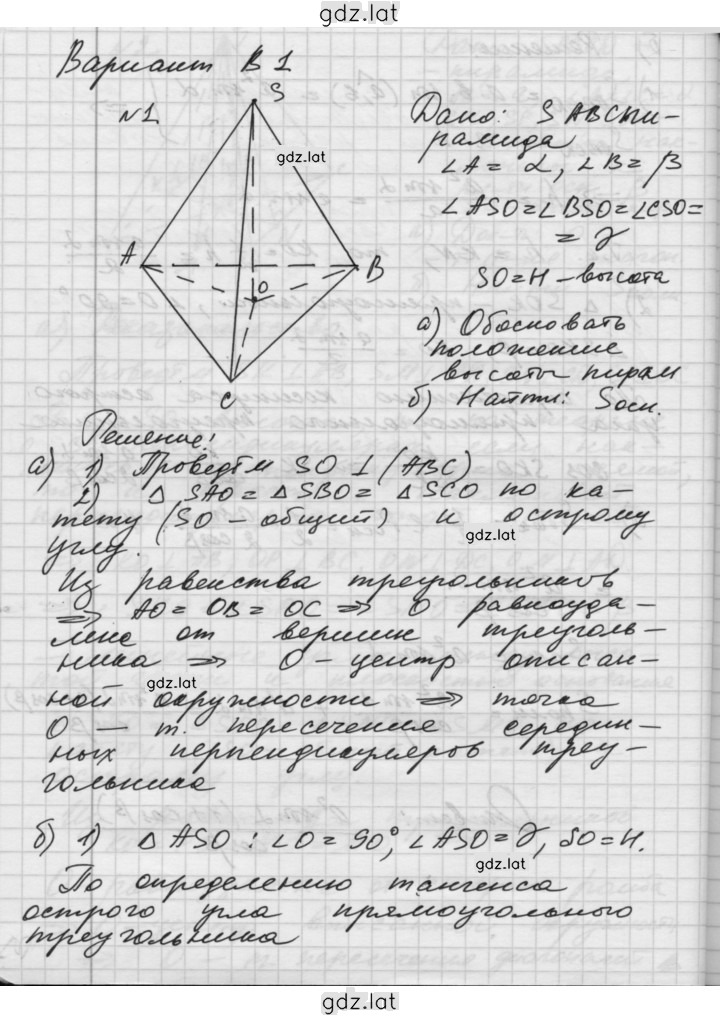 gdz.lat
Вариант В1
№1
S
gdz.lat
A
B
O
C
Дано: SABC пи-
рамида
∠A = α, ∠B = β
∠ASO = ∠BSO = ∠CSO =
= γ
SO = H – высота
а) Обосновать
положение
высоты пирам
б) Найти: Sосн.
Решение:
а) 1) Проведём SO ⊥ (ABC)
2) △ SAO = △ SBO = △ SCO по ка-
тету (SO – общий) и острому
углу.
gdz.lat
Из равенства треугольников
⇒ AO = OB = OC ⇒ O равноуда-
лене от вершин треуголь-
ника ⇒ O – центр описан-
gdz.lat
ной окружности ⇒ точка
O — т. пересечения середин-
ных перпендикуляров треу-
гольника
б) 1) △ ASO : ∠O = 90°, ∠ASO = γ, SO = H.
gdz.lat
По определению тангенса
острого угла прямоугольного
треугольника
gdz.lat